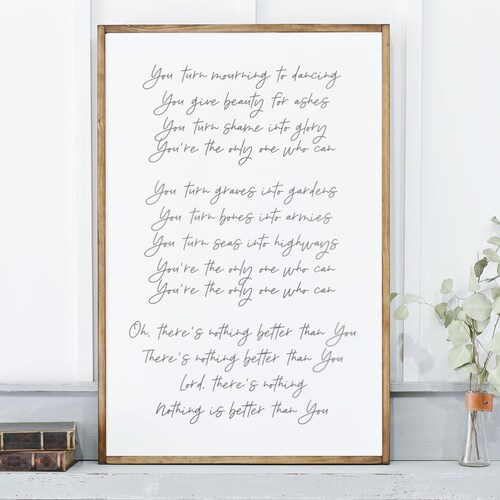 You turn mourning to dancing
You give beauty for ashes
You turn shame into glory
You're the only one who can
You turn graves into gardens
You turn bones into armies
You turn seas into highways
You're the only one who can
You're the only one who can
Oh, there's nothing better than You
There's nothing better than You
Lord, there's nothing
Nothing is better than You